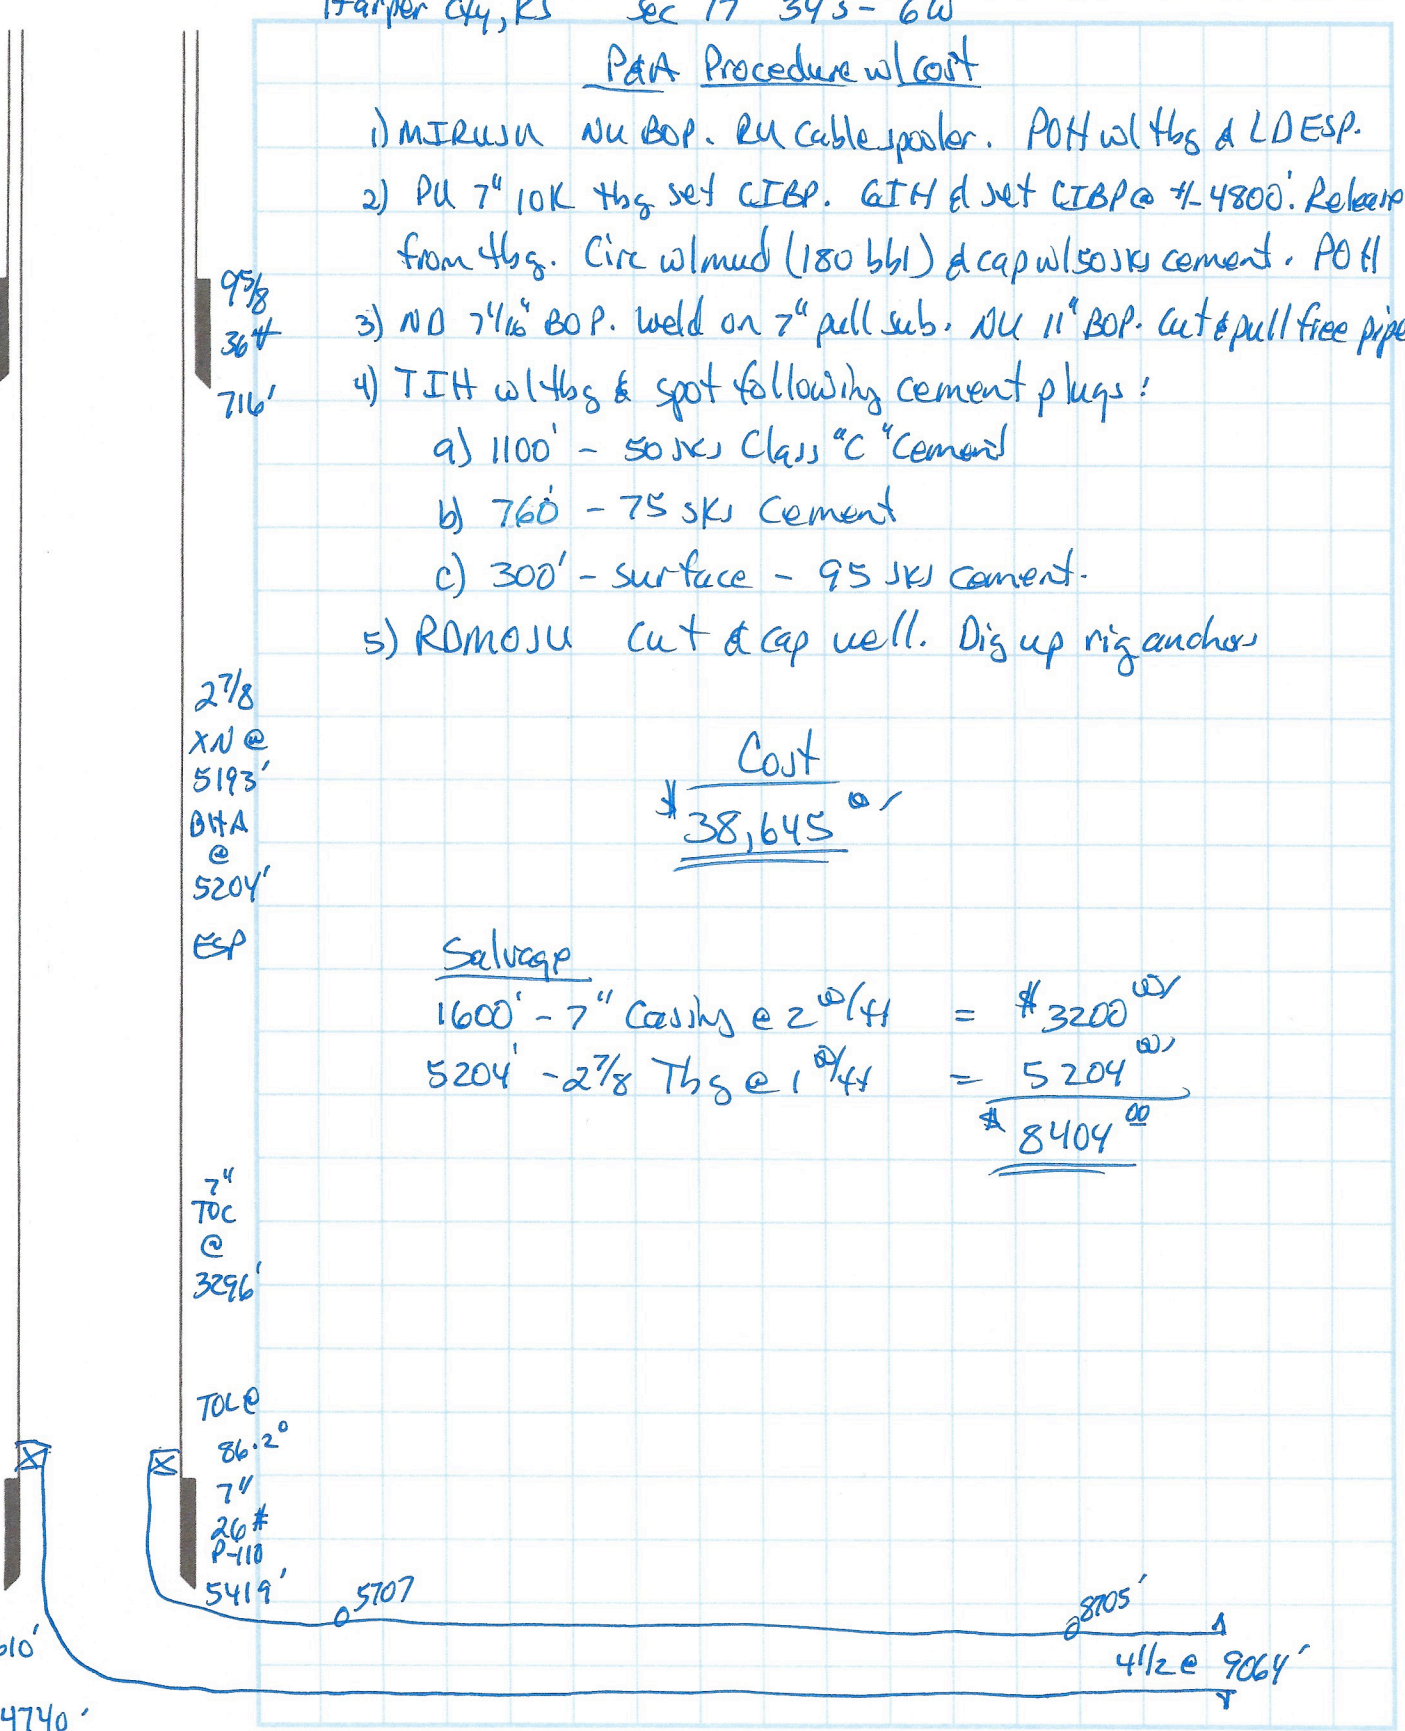 Harper Cty, KS Sec 17 34S - 6W
P&A Procedure w/ Cost
1) MIRUSU NU BOP. RU Cable spooler. POH w/ tbg & LD ESP.
2) PU 7" 10K tbg set CIBP. GIH & set CIBP @ +/- 4800'. Release
from tbg. Circ w/ mud (180 bbl) & cap w/ 50 sks cement. POH
9 5/8
36#
716'
3) ND 7 1/16" BOP. Weld on 7" pull sub. NU 11" BOP. Cut & pull free pipe
4) TIH w/ tbg & spot following cement plugs:
a) 1100' - 50 sks Class "C" Cement
b) 760' - 75 sks Cement
c) 300' - surface - 95 sks cement.
5) RDMOSU Cut & cap well. Dig up rig anchors
2 7/8
XN @
5193'
BHA
@
5204'
ESP
Cost
$38,645 00
Salvage
1600' - 7" Casing @ 2 00/ft = $3200 00
5204' - 2 7/8 Tbg @ 1 00/ft = 5204 00
$8404 00
7"
TOC
@
3296'
TOL @
86.2°
7"
26#
P-110
5419'
5707
8705'
4 1/2 @ 9064'
610'
4740'